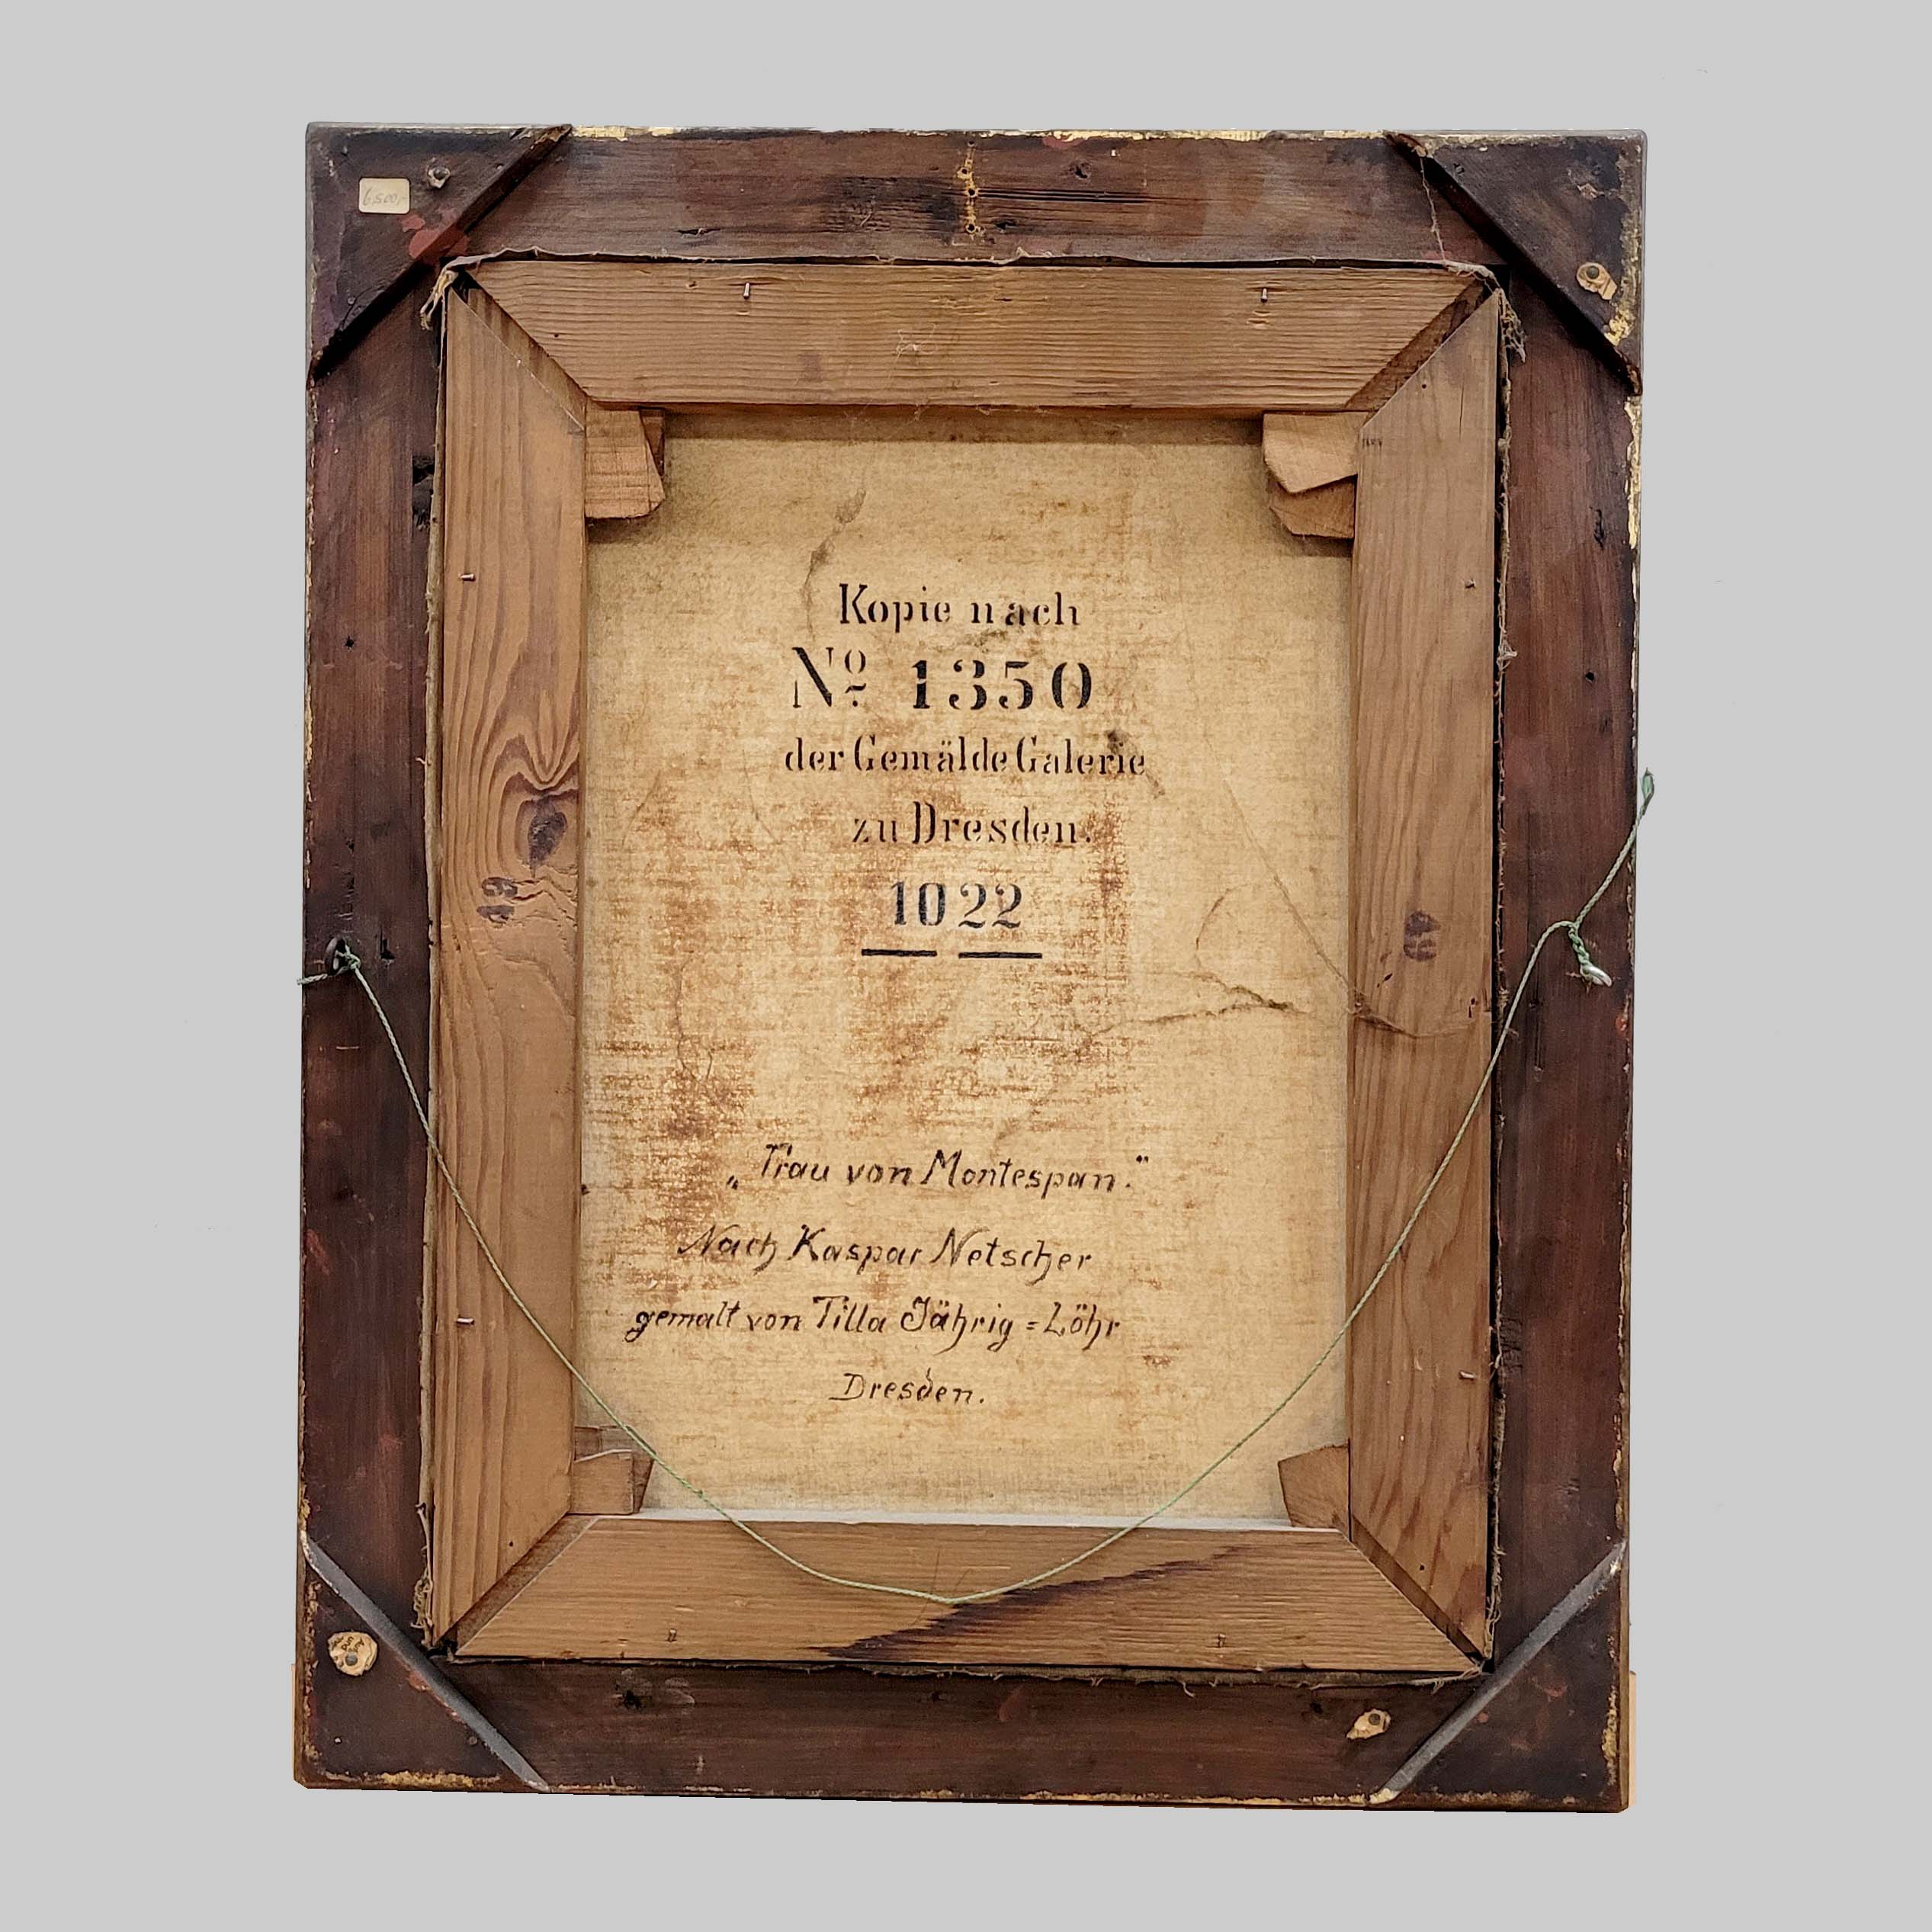 6.500,-
Kopie nach
Nº 1350
der Gemälde Galerie
zu Dresden.
1022
„Frau von Montespan.“
Nach Kaspar Netscher
gemalt von Tilla Jährig=Löhr
Dresden.